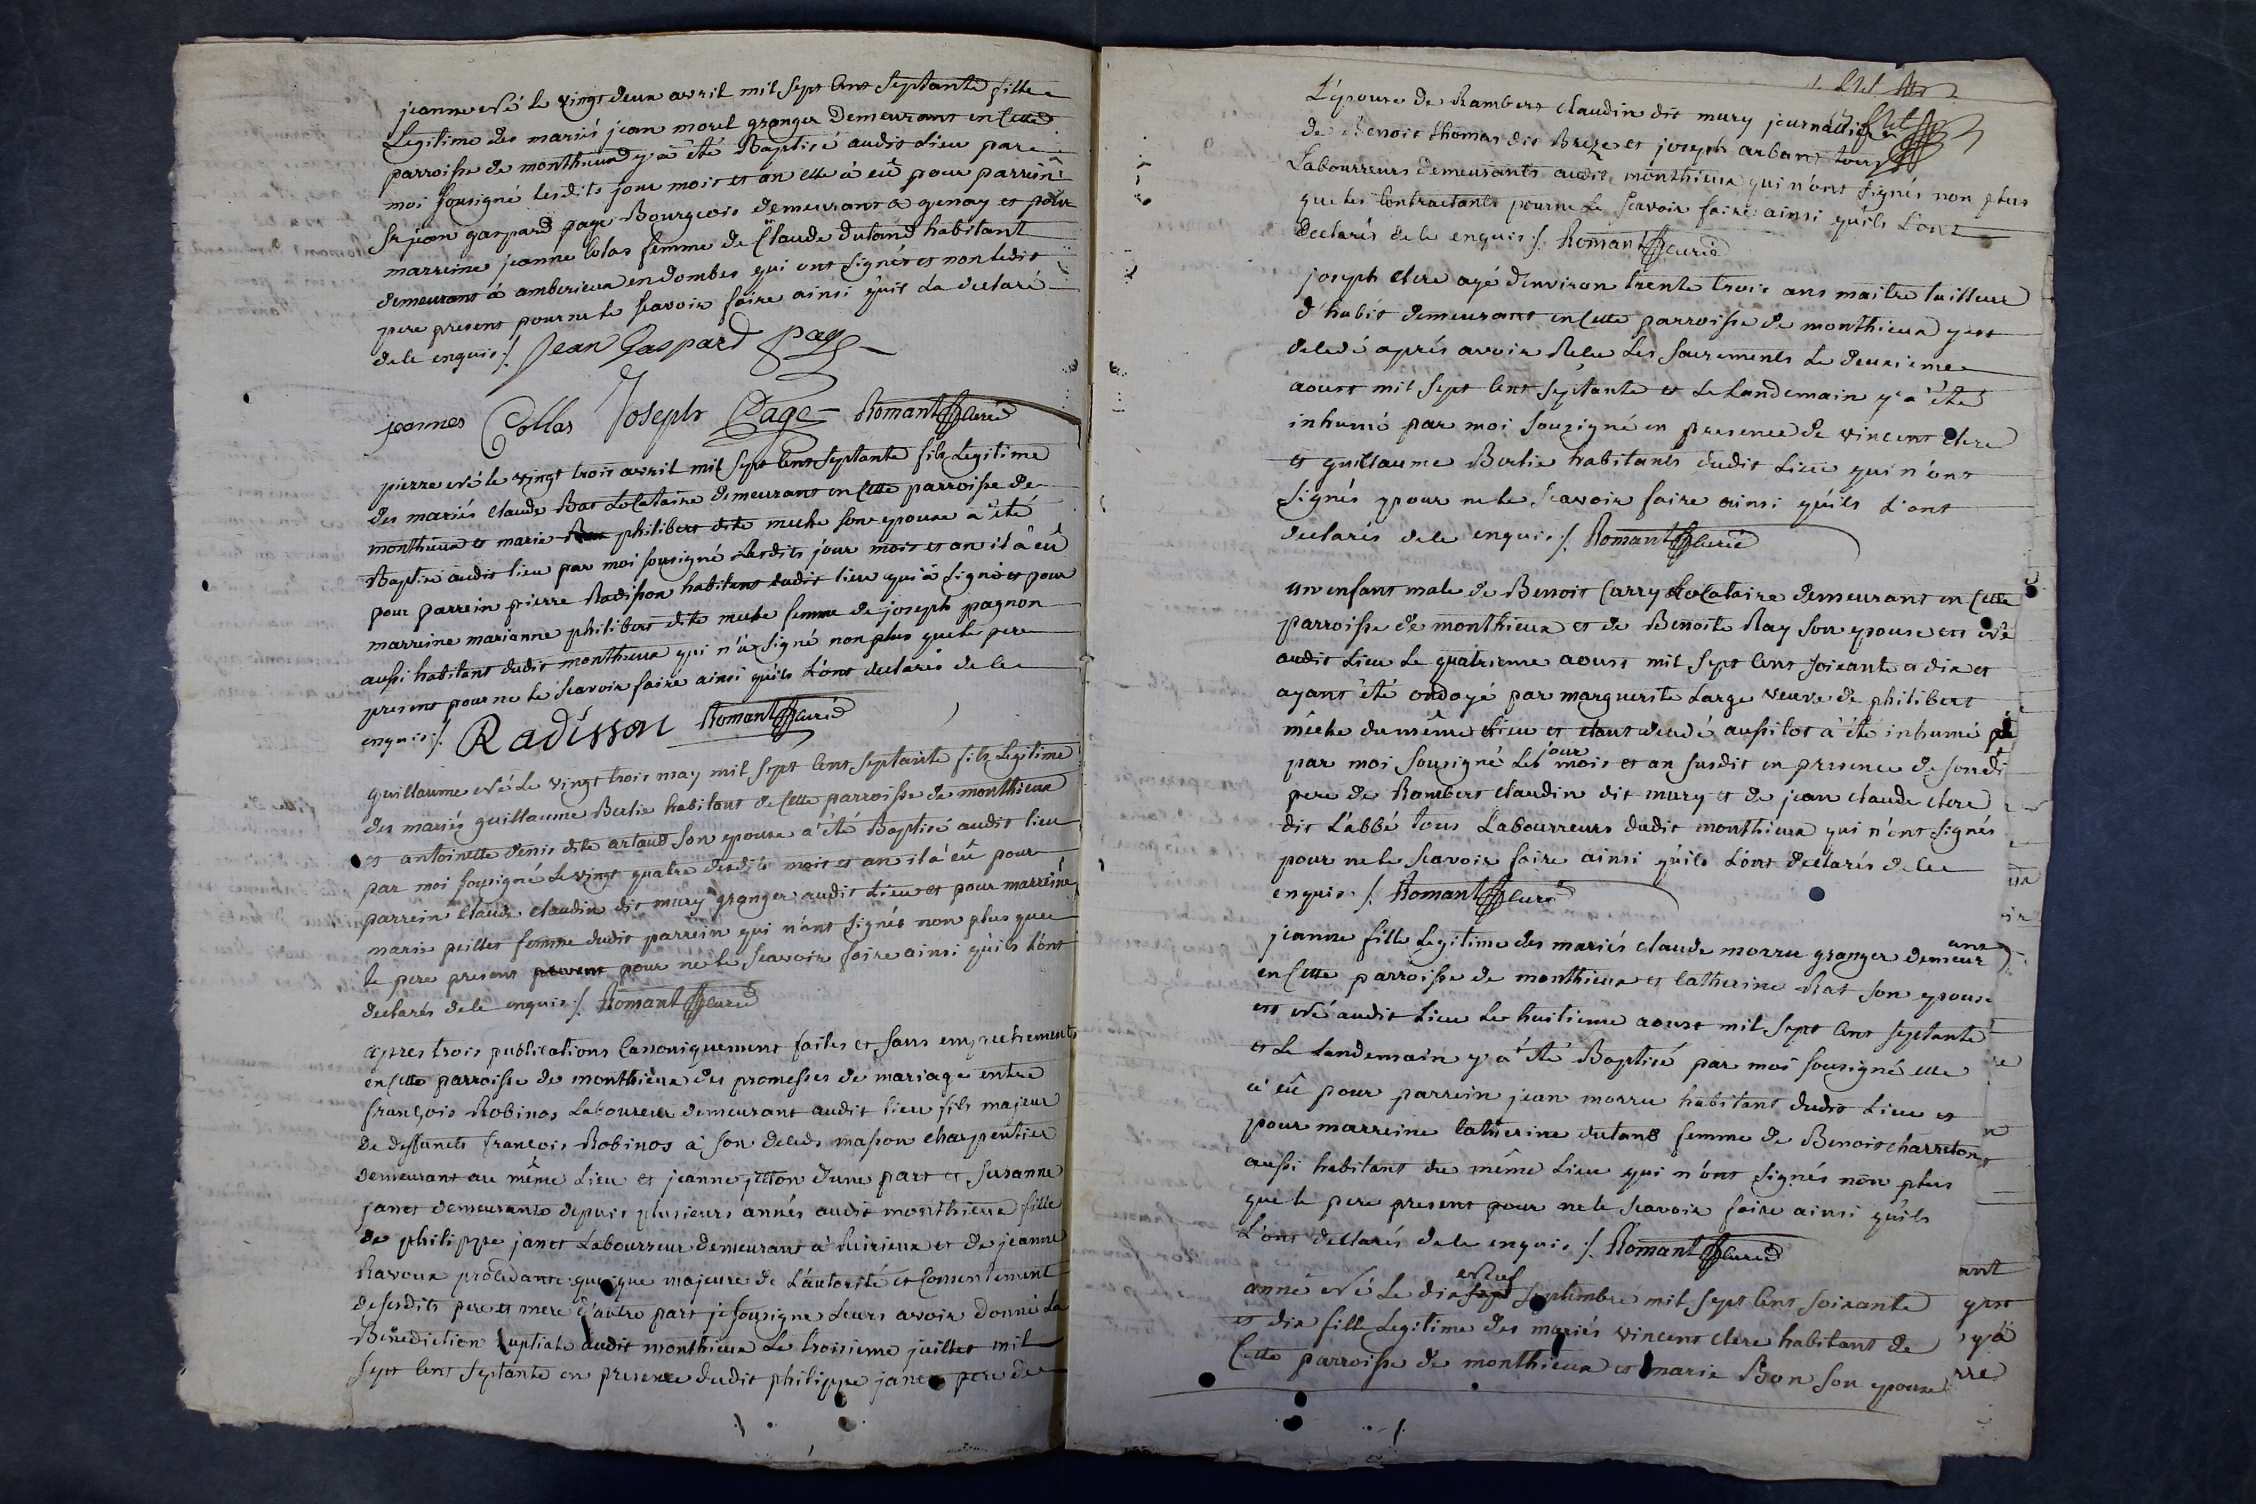 jeanne née le vingt deux avril mil sept cent septante fille
Legitime des mariés jean morel granger demeurant en cette
parroisse de monthieux y à été Baptisé audit Lieu par
moi sousigné lesdits jour mois et an elle à eû pour parrein
Sr jean gaspard page Bourgeois demeurant à genay et pour
marreine jeanne Colas femme de Claude dutand habitant
demeurant à amberieux en dombes qui ont signés et non ledit
pere present pour ne le scavoir faire ainsi qu'il La declaré
de le enquis /. Jean Gaspard Page
jeannes Collas Joseph Page Romant Curé
pierre né le vingt trois avril mil sept cent septante fils Legitime
des mariés claude Bas Locataire demeurant en cette parroisse de
monthieux et marie philibert dite meche son epouse a été
Baptisé audit lieu par moi sousigné lesdits jour mois et an il à eû
pour parrein pierre Radisson habitant dudit lieu qui à signé et pour
marreine marianne philibert dite meche femme de joseph pagnon
aussi habitant dudit monthieux qui n'a signé non plus que le pere
present pour ne le scavoir faire ainsi qu'ils L'ont declarés de le
enquis /. Radisson Romant Curé
guillaume né Le vingt trois may mil sept cent septante fils Legitime
des mariés guillaume Berlie habitant de cette parroisse de monthieux
et antoinette denis dite artaud son epouse a été Baptisé audit lieu
par moi sousigné Le vingt quatre desdits mois et an il à eû pour
parrein claude claudin dit mury granger audit Lieu et pour marreine
marie peillet femme dudit parrein qui n'ont signés non plus que
le pere present pour ne le scavoir faire ainsi qu'ils L'ont
declarés de le enquis /. Romant Curé
apres trois publications Canoniquement faites et sans empechements
en cette parroisse de monthieux des promesses de mariage entre
françois Robinos Laboureur demeurant audit lieu fils majeur
de deffuncts françois Robinos à son deceds masson charpentier
demeurant au même Lieu et jeanne jetton d'une part et Susanne
janet demeurante depuis plusieurs annés audit monthieux fille
de philippe janet Labourreur demeurant à Reirieux et de jeanne
Ravoux procedante quoique majeure de L'autorité et Consentement
de sesdits pere et mere d'autre part je sousigne Leurs avoir donné La
Benediction nuptiale audit monthieux Le troisieme juillet mil
sept cent septante en presence dudit philippe janet pere de
L'epouse de Rambert claudin dit mury journallier
de Benoit thomas dit Breze et joseph arban tous
Labourreurs demeurants audit monthieux qui n'ont signés non plus
que les Contractants pour ne Le scavoir faire ainsi qu'ils L'ont
declarés de le enquis /. Romant Curé
joseph clere agé d'environ trente trois ans maitre tailleur
d'habit demeurant en cette parroisse de monthieux y est
decedé aprés avoir Reçu Les sacrements Le deuxieme
aoust mil sept cent septante et Le Landemain y a été
inhumé par moi sousigné en presence de vincent clere
et guillaume Berlie habitants dudit Lieu qui n'ont
signés pour ne le scavoir faire ainsi qu'ils L'ont
declarés de le enquis /. Romant Curé
un enfant male de Benoit Carry Locataire demeurant en cette
parroisse de monthieux et de Benoite Ray son epouse est né
audit Lieu Le quatrieme aoust mil sept cent soixante et dix et
ayant été ondoyé par marguerite Large veuve de philibert
mêche du même Lieu et etant decedé aussitot a été inhumé
par moi sousigné Les jour mois et an susdit en presence de sondi
pere de Rambert claudin dit mury et de jean claude clere
dit L'abbé tous Labourreurs dudit monthieux qui n'ont signés
pour ne le scavoir faire ainsi qu'ils L'ont declarés de le
enquis /. Romant Curé
jeanne fille Legitime des mariés claude morru granger demeurant
en cette parroisse de monthieux et catherine Rat son epouse
est née audit Lieu Le huitieme aoust mil sept cent septante
et Le Landemain y a été Baptisé par moi sousigné elle
à eû pour parrein jean morru habitant dudit Lieu et
pour marreine catherine dutand femme de Benoit charreton
aussi habitant du même Lieu qui n'ont signés non plus
que le pere present pour ne le scavoir faire ainsi qu'ils
L'ont declarés de le enquis /. Romant Curé
anne née Le dix neuf septembre mil sept cent soixante
et dix fille Legitime des mariés vincent clere habitant de
Cette parroisse de monthieux et marie Bon son epouse